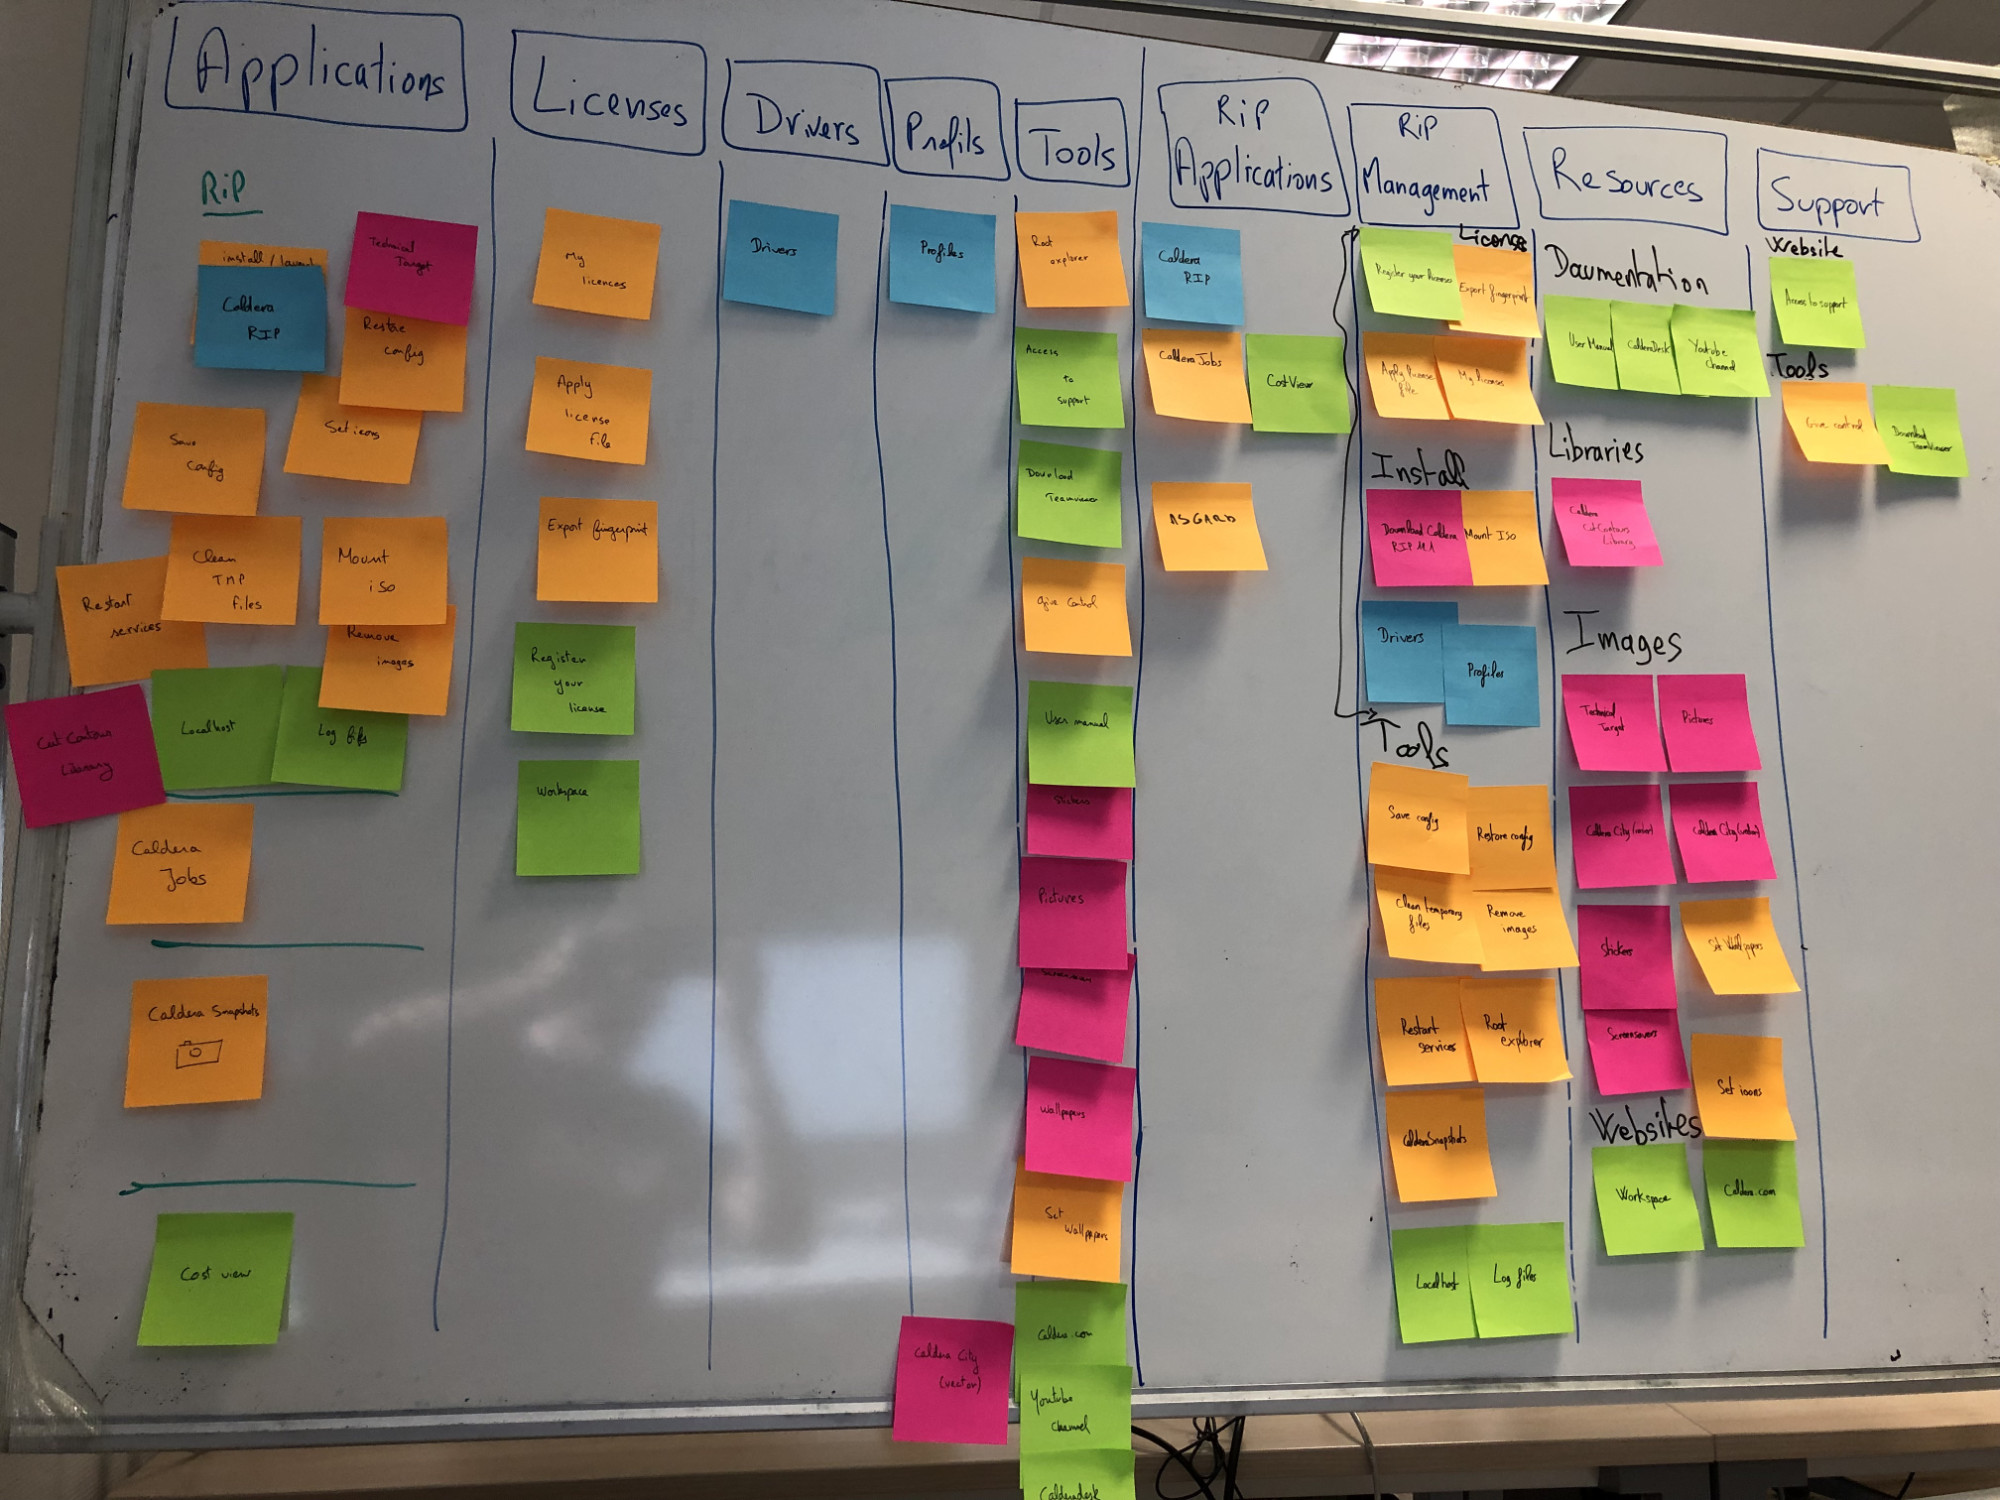 Applications
RiP
install / launch
Caldera
RIP
Technical
Target
Restore
config
Set icons
Save
config
Clean
TMP
files
Mount
iso
Restart
services
Remove
images
Cut Contour
Library
Localhost
Log files
Caldera
Jobs
Caldera Snapshots
Cost view
Licenses
My
licences
Apply
license
file
Export fingerprint
Register
your
license
Workspace
Drivers
Drivers
Profils
Profiles
Caldera City
(vector)
Tools
Root
explorer
Access
to
support
Download
Teamviewer
Give Control
User manual
Stickers
Pictures
Wallpapers
Set
Wallpapers
Caldera.com
Youtube
Channel
Calderadesk
RiP
Applications
Caldera
RIP
CalderaJobs
CostView
ASGARD
RiP
Management
License
Register your license
Export fingerprint
Apply license
file
My licenses
Install
Download Caldera
RIP
Mount ISO
Drivers
Profiles
Tools
Save config
Restore config
Clean temporary
files
Remove
images
Restart
services
Root
explorer
CalderaSnapshots
Localhost
Log files
Resources
Documentation
User Manual
CalderaDesk
Youtube
Channel
Libraries
Caldera
CutContour
Library
Images
Technical
Target
Pictures
Caldera City (vector)
Stickers
Set Wallpapers
Screensavers
Set icons
Websites
Workspace
Caldera.com
Support
Website
Access to support
Tools
Give control
Download
TeamViewer